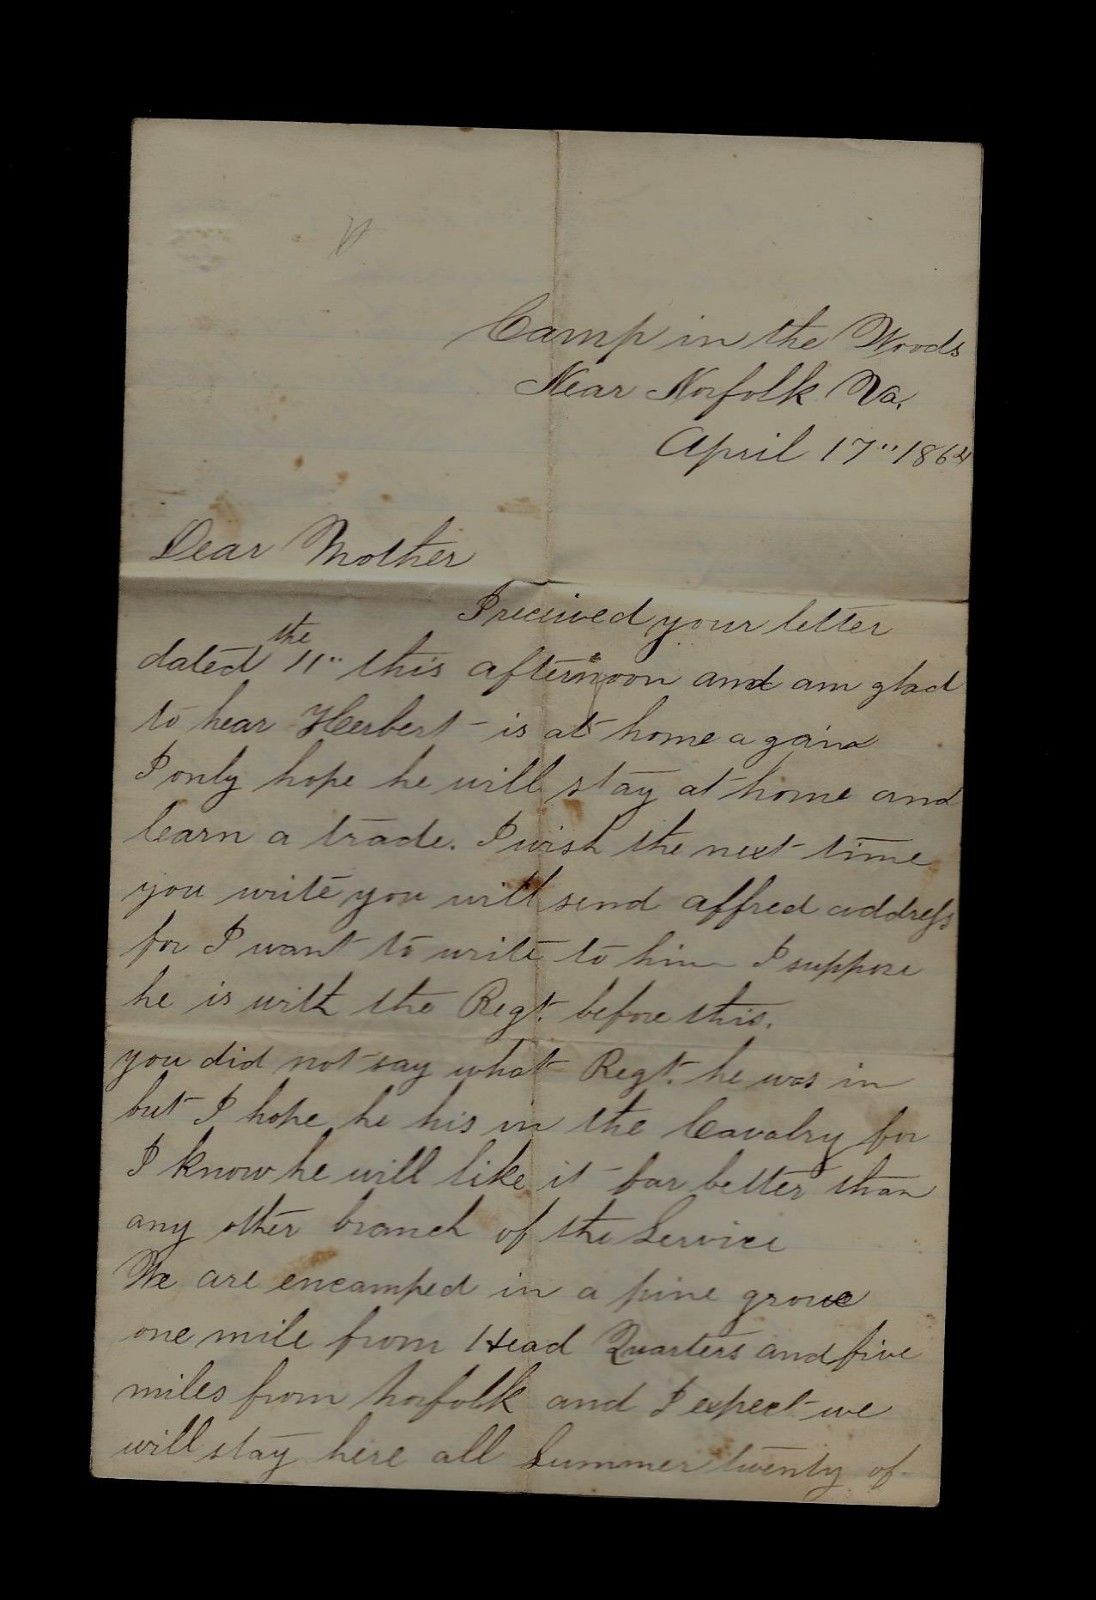 Camp in the Woods
Near Norfolk Va.
April 17" 1864
Dear Mother
I received your letter
the
dated 11" this afternoon and am glad
to hear Herbert is at home again
I only hope he will stay at home and
learn a trade. I wish the next time
you write you will send affred address
for I want to write to him I suppose
he is with the Regt. before this.
you did not say what Regt. he was in
but I hope he his in the Cavalry for
I know he will like it far better than
any other branch of the Service
We are encamped in a pine grove
one mile from Head Quarters and five
miles from Norfolk and I expect we
will stay here all Summer twenty of